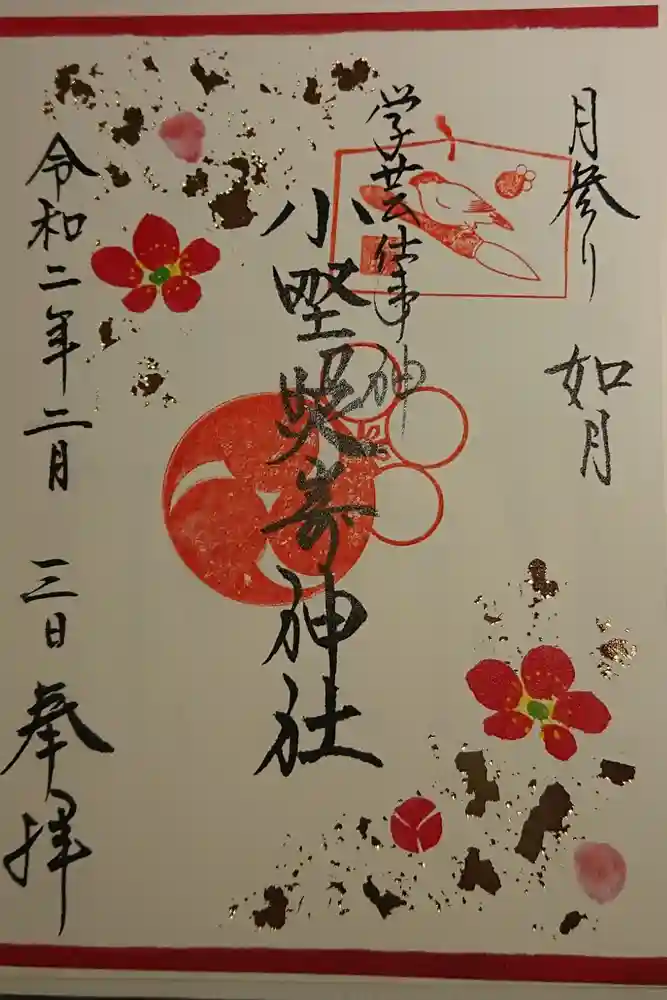 月参り 如月
学芸仕事神
小野照崎神社
令和二年二月三日 奉拝